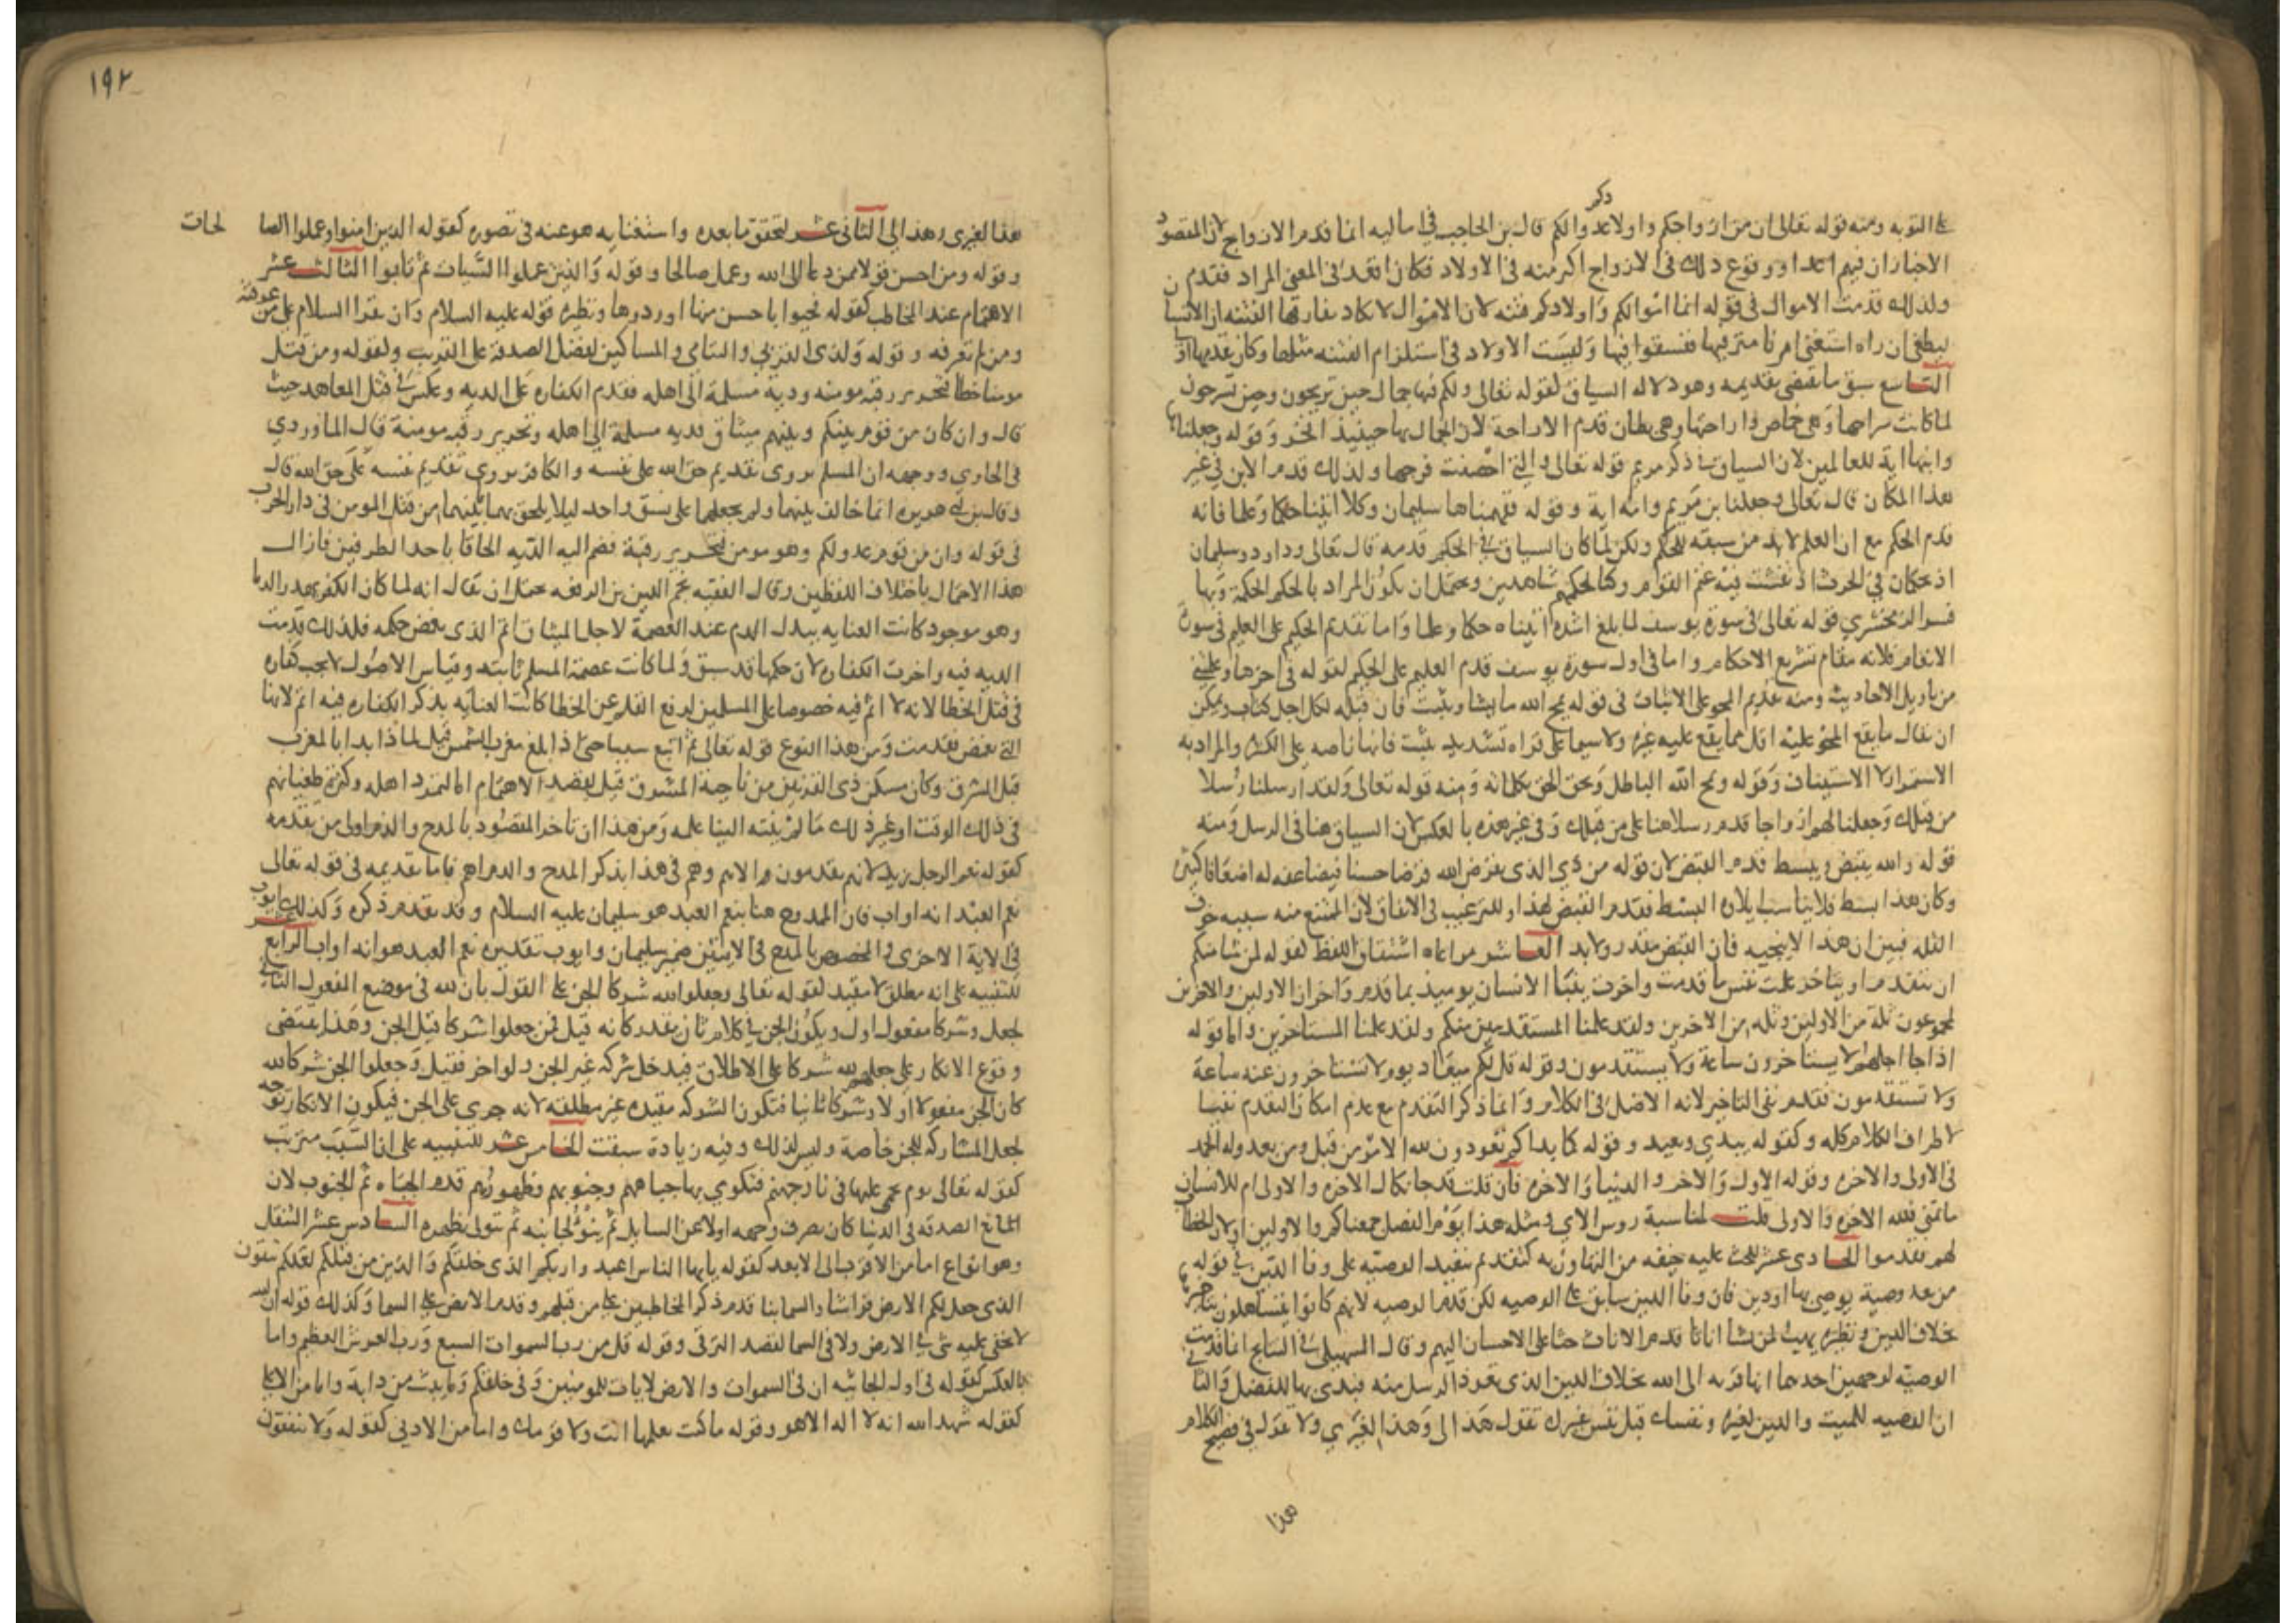 ذكر
على التوبه ومنه قوله تعالى ان من ازواجكم واولادكم عدوا لكم قال بن الحاجب في اماليه انما قدم الازواج لان المقصود
الاخبار ان فيهم اعداء ووقوع ذلك في الازواج اكثر منه في الاولاد فكان اقعد في المعنى المراد فقدم
ولذلك قدمت الاموال في قوله انما اموالكم واولادكم فتنه لان الاموال لا تكاد تفارقها الفتنه ان الانسا
ليطغى ان راه استغنى امرنا مترفيها ففسقوا فيها وليست الاولاد في استلزام الفتنه مثلها وكان تقديمها
التاسع سبق ما يقتضي تقديمه وهو دلاله السياق لقوله تعالى ولكم فيها جمال حين تريحون وحين تسرحون
لما كانت سراحها وهي خماص واراحتها وهي بطان قدم الاراحة لان الجمال بها حينيذ افخر وقوله وجعلناها
وابنها اية للعالمين لان السياق في ذكر مريم قوله تعالى والتي احصنت فرجها ولذلك قدم الابن في غير
هذا المكان قال تعالى وجعلنا بن مريم وامه اية وقوله ففهمناها سليمان وكلا اتينا حكما وعلما فانه
قدم الحكم مع ان العلم لابد من سبقه للحكم ولكن لما كان السياق في الحكم قدمه قال تعالى وداود وسليمان
اذ يحكمان في الحرث اذ نفشت فيه غنم القوم وكنا لحكمهم شاهدين ويحتمل ان يكون المراد بالحكم الحكمة وبها
فسر الزمخشري قوله تعالى في سورة يوسف لما بلغ اشده اتيناه حكما وعلما واما تقديم الحكيم على العليم في سورة
الانعام فلانه مقام تشريع الاحكام واما في اول سورة يوسف قدم العليم على الحكيم لقوله في اخرها وعلمتني
من تاويل الاحاديث ومنه تقديم المحو على الاثبات في قوله يمحو الله ما يشا ويثبت فان قبله لكل اجل كتاب ويمكن
ان يقال ما يقع المحو عليه اقل مما يقع عليه غيره ولا سيما على قراه تشديد يثبت فانها ناصه على الكثره والمراد به
الاستمرار لا الاستيناف وقوله ويمح الله الباطل ويحق الحق بكلماته ومنه قوله تعالى ولقد ارسلنا رسلا
من قبلك وجعلنا لهم ازواجا قدم رسلا هنا على من قبلك وفي غير هذه بالعكس لان السياق هنا في الرسل ومنه
قوله والله يقبض ويبسط قدم القبض لان قوله من ذي الذي يقرض الله قرضا حسنا فيضاعفه له اضعافا كثيره
وكان هذا بسط فلا يناسب تلاوة البسط فقدم القبض لهذا وللترغيب في الانفاق لان الممتنع منه سببه خوف
القله فبين ان هذا لا ينجيه فان القبض مقدر ولابد العاشر مراعاه اشتقاق اللفظ لقوله لمن شا منكم
ان يتقدم او يتاخر علمت نفس ما قدمت واخرت ينبا الانسان يوميذ بما قدم واخر ان الاولين والاخرين
لمجموعون ثلة من الاولين وثله من الاخرين ولقد علمنا المستقدمين منكم ولقد علمنا المستاخرين واما قوله
اذا جا اجلهم لا يستاخرون ساعة ولا يستقدمون وقوله قل لكم ميعاد يوم لا تستاخرون عنه ساعة
ولا تستقدمون فقدم نفي التاخير لانه الاصل في الكلام وانما ذكر التقدم مع عدم امكان التقدم نفيا
لاطراف الكلام كله وكقوله يبدي ويعيد وقوله كما بداكم تعودون لله الامر من قبل ومن بعد وله الحمد
في الاولى والاخره وقوله الاول والاخر والدنيا والاخره فان قلت قد جا نكال الاخره والاولى ام للانسان
ما تمنى فلله الاخره والاولى قلت لمناسبة روس الاي ومثله هذا يوم الفصل جمعناكم والاولين اولان الخطاب
لهم فقدموا الحادي عشر للحث عليه خيفه من التهاون به كتقديم تنفيذ الوصيه على وفا الدين في قوله
من بعد وصية يوصي بها اودين فان وفا الدين سابق على الوصيه لكن قدم الوصيه لانهم كانوا يتساهلون بتاخيرها
بخلاف الدين ونظيره يهب لمن يشا اناثا قدم الاناث حثا على الاحسان اليهم وقال السهيلي في النتايج انما قدمت
الوصيه لوجهين احدهما انها قربه الى الله بخلاف الدين الذي تعوذ الرسل منه فبدى بها للفضل والثاني
ان الوصيه للميت والدين لغيره ونفسك قبل نفس غيرك تقول هذا لي وهذا لغيري ولا تقول في فصيح الكلام
هذا
١٩٢
هذا لغيري وهذا لي الثاني عشر لتحقق ما بعده واستغنايه هو عنه في تصوره كقوله الذين امنوا وعملوا الصا لحات
وقوله ومن احسن قولا ممن دعا الى الله وعمل صالحا وقوله والذين عملوا السيات ثم تابوا الثالث عشر
الاهتمام عند المخاطب كقوله فحيوا باحسن منها او ردوها ونظيره قوله عليه السلام وان تقرا السلام على من عرفته
ومن لم تعرفه وقوله ولذي القربى واليتامى والمساكين لفضل الصدقة على القريب وكقوله ومن قتل
مومنا خطا فتحرير رقبه مومنه ودية مسلمة الى اهله فقدم الكفاره على الديه وعكس في قتل المعاهد حيث
قال وان كان من قوم بينكم وبينهم ميثاق فديه مسلمة الى اهله وتحرير رقبه مومنة قال الماوردي
في الحاوي ووجهه ان المسلم يروي تقديم حق الله على نفسه والكافر يروي تقديم نفسه على حق الله قال
وقال بن ابي هريره انما خالف بينهما ولم يجعلهما على نسق واحد ليلا يلحق بهما ما بينهما من قتل المومن في دار الحرب
في قوله وان من قوم عدو لكم وهو مومن فتحرير رقبة فضم اليه الديه الحاقا باحد الطرفين فازال
هذا الاحتمال باختلاف اللفظين وقال الفقيه نجم الدين بن الرفعه يحتمل ان يقال انه لما كان الكفر يهدر الدما
وهو موجود كانت العنايه ببدل الدم عند العصمة لاجل الميثاق اتم الذي بغمض حكمه فلذلك قدمت
الديه فيه واخرت الكفاره لان حكمها قد سبق ولما كانت عصمة المسلم ثابته وقياس الاصول لا يجب كفاره
في قتل الخطا لانه لا اثم فيه خصوصا على المسلمين لرفع القلم عن الخطا كانت العنايه بذكر الكفاره فيه اتم لانها
التي بغمض فقدمت ومن هذا النوع قوله تعالى ثم اتبع سببا حتى اذا بلغ مغرب الشمس قيل لماذا بدا بالمغرب
قبل المشرق وكان مسكن ذي القرنين من ناحية المشرق قيل لقصد الاهتمام اما لتمرد اهله وكثرة طغيانهم
في ذلك الوقت او غير ذلك مما لم ينته الينا علمه ومن هذا ان تاخر المقصود بالمدح والذم اولى من تقدمه
كقوله نعم الرجل زيد لانهم يقدمون الاهم وهم في هذا بذكر المدح والذم اهم فاما تقديمه في قوله تعالى
نعم العبد انه اواب فان الممدوح هنا بنعم العبد هو سليمان عليه السلام وقد تقدم ذكره وكذلك ايوب
في الاية الاخرى والمخصوص بالمدح في الايتين ضمير سليمان وايوب تقديره نعم العبد هو انه اواب الرابع عشر
للتنبيه على انه مطلق لا مقيد لقوله تعالى وجعلوا لله شركا الجن على القول بان لله في موضع المفعول الثاني
لجعل وشركا مفعول اول ويكون الجن في كلام ثان مقدر كانه قيل فمن جعلوا شركا قيل الجن وهذا يقتضي
وقوع الانكار على جعلهم لله شركا على الاطلاق فيدخل شركه غير الجن ولو اخر فقيل وجعلوا الجن شركا لله
كان الجن مفعولا اولا وشركا ثانيا فتكون الشركه مقيده غير مطلقه لانه جرى على الجن فيكون الانكار توجه
لجعل المشاركه للجن خاصة وليس كذلك وفيه زيادة سبقت الخامس عشر للتنبيه على ان السبب مترتب
كقوله تعالى يوم يحمى عليها في نار جهنم فتكوي بها جباههم وجنوبهم وظهورهم قدم الجباه ثم الجنوب لان
المانع الصدقه في الدنيا كان يصرف وجهه اولا عن السايل ثم ينوء بجانبه ثم يتولى بظهره السادس عشر التنقل
وهو انواع اما من الاقرب الى الابعد كقوله يايها الناس اعبدوا ربكم الذي خلقكم والذين من قبلكم لعلكم تتقون
الذي جعل لكم الارض فراشا والسما بنا قدم ذكر المخاطبين على من قبلهم وقدم الارض على السما وكذلك قوله ان الله
لا يخفى عليه شي في الارض ولا في السما لقصد الترقي وقوله قل من رب السموات السبع ورب العرش العظيم واما
بالعكس كقوله في اول الجاثيه ان في السموات والارض لايات للمومنين وفي خلقكم وما يبث من دابة واما من الاعلى
كقوله شهد الله انه لا اله الا هو وقوله ما كنت تعلمها انت ولا قومك واما من الادنى كقوله ولا ينفقون